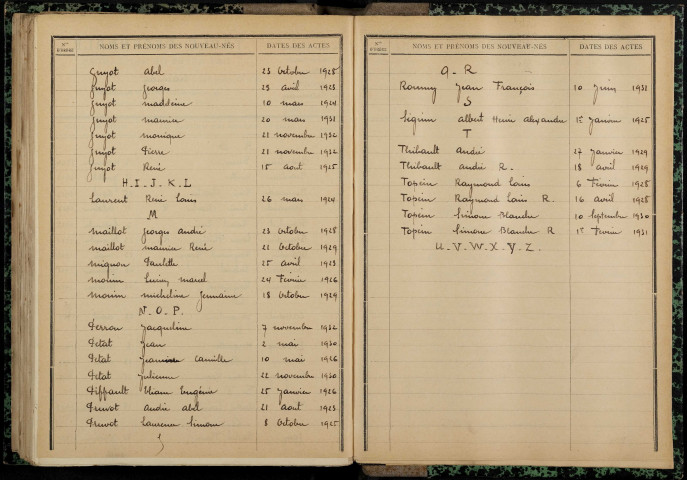 Nos D'ORDRE NOMS ET PRÉNOMS DES NOUVEAU-NÉS DATES DES ACTES
Guyot Abel 23 Octobre 1928
Guyot Georges 29 Avril 1923
Guyot Madeleine 10 Mars 1924
Guyot Maurice 20 Mars 1931
Guyot Monique 21 Novembre 1932
Guyot Pierre 21 Novembre 1932
Guyot René 15 Août 1925
H.I.J.K.L
Laurent René Louis 26 Mars 1924
M
Maillot Georges André 23 Octobre 1928
Maillot Maurice René 22 Octobre 1929
Mignon Paulette 25 Avril 1923
Morin Lucien Marcel 24 Février 1926
Morin Micheline Germaine 18 Octobre 1929
N.O.P.
Perron Jacqueline 7 Novembre 1932
Petat Jean 2 Mai 1930
Petat Camille 10 Mai 1926
Petat Julienne 22 Novembre 1930
Piffault Eugénie 25 Janvier 1926
Pruvot André Abel 21 Août 1923
Pruvot Laurence Simone 8 Octobre 1925
Nos D'ORDRE NOMS ET PRÉNOMS DES NOUVEAU-NÉS DATES DES ACTES
Q-R
Jean François 10 Juin 1931
S
Albert Henri Alexandre 1er Janvier 1925
T
Thibault André 27 Janvier 1929
Thibault André R. 18 Avril 1929
Topin Raymond Louis 6 Février 1928
Topin Raymond Louis R. 16 Avril 1928
Topin Simone Blanche 10 Septembre 1930
Topin Simone Blanche R 1er Février 1931
U.V.W.X.Y.Z.